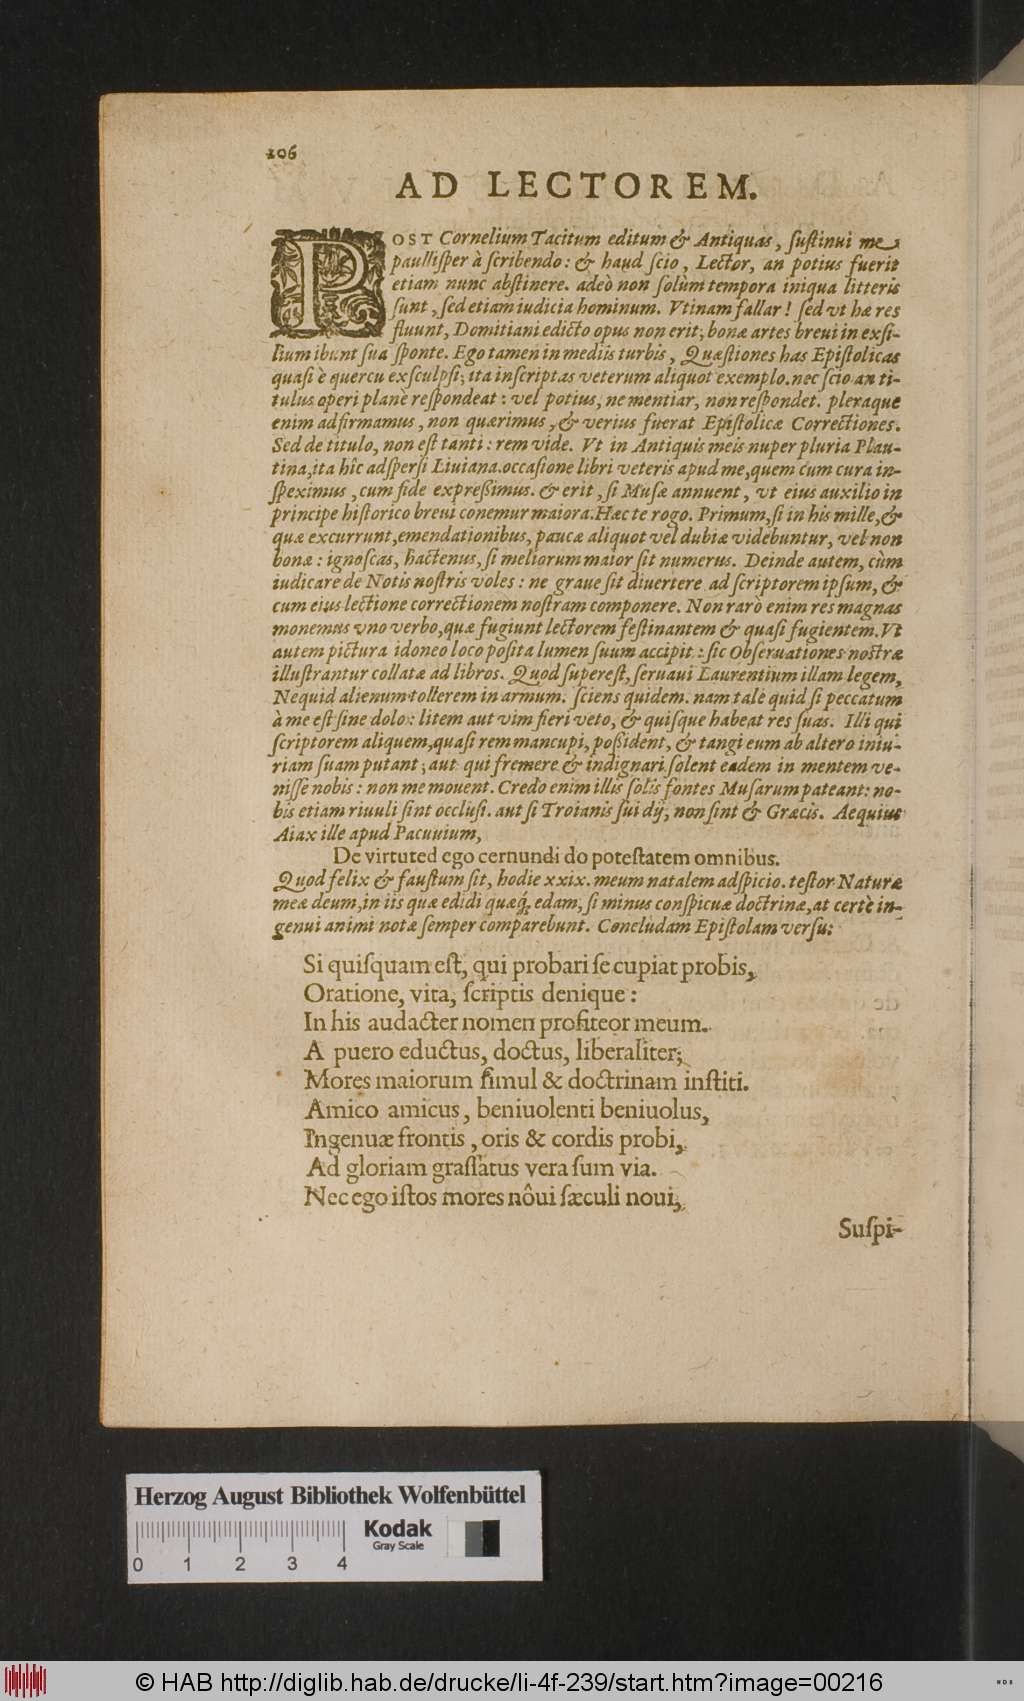 206
AD LECTOREM.
POST Cornelium Tacitum editum & Antiquas, ſuſtinui me
paulliſper à ſcribendo: & haud ſcio, Lector, an potius fuerit
etiam nunc abſtinere. adeò non ſolùm tempora iniqua litteris
ſunt, ſed etiam iudicia hominum. Vtinam fallar! ſed vt hæ res
fluunt, Domitiani edicto opus non erit; bonæ artes breui in exſi-
lium ibunt ſua ſponte. Ego tamen in mediis turbis, Quæſtiones has Epiſtolicas
quaſi è quercu exſculpſi; ita inſcriptas veterum aliquot exemplo. nec ſcio an ti-
tulus operi planè reſpondeat: vel potius, ne mentiar, non reſpondet. pleraque
enim adfirmamus, non quærimus, & verius fuerat Epiſtolicæ Correctiones.
Sed de titulo, non eſt tanti: rem vide. Vt in Antiquis meis nuper pluria Plau-
tina, ita hîc adſperſi Liuiana. occaſione libri veteris apud me, quem cum cura in-
ſpeximus, cum fide expreßimus. & erit, ſi Muſæ annuent, vt eius auxilio in
principe hiſtorico breui conemur maiora. Hæc te rogo. Primum, ſi in his mille, &
quæ excurrunt, emendationibus, paucæ aliquot vel dubiæ videbuntur, vel non
bonæ: ignoſcas, hactenus, ſi meliorum maior ſit numerus. Deinde autem, cùm
iudicare de Notis noſtris voles: ne graue ſit diuertere ad ſcriptorem ipſum, &
cum eius lectione correctionem noſtram componere. Non rarò enim res magnas
monemus vno verbo, quæ fugiunt lectorem feſtinantem & quaſi fugientem. Vt
autem pictura idoneo loco poſita lumen ſuum accipit: ſic Obſeruationes noſtræ
illuſtrantur collatæ ad libros. Quod ſupereſt, ſeruaui Laurentium illam legem,
Nequid alienum tollerem in armum. ſciens quidem. nam tale quid ſi peccatum
à me eſt ſine dolo: litem aut vim fieri veto, & quiſque habeat res ſuas. Illi qui
ſcriptorem aliquem, quaſi rem mancupi, poßident, & tangi eum ab altero iniu-
riam ſuam putant; aut qui fremere & indignari ſolent eadem in mentem ve-
niſſe nobis: non me mouent. Credo enim illis ſolis fontes Muſarum pateant: no-
bis etiam riuuli ſint occluſi. aut ſi Troianis ſui dij, non ſint & Græcis. Aequius
Aiax ille apud Pacuuium,
De virtuted ego cernundi do poteſtatem omnibus.
Quod felix & fauſtum ſit, hodie xxix. meum natalem adſpicio. teſtor Naturæ
meæ deum, in iis quæ edidi quæq́; edam, ſi minus conſpicuæ doctrinæ, at certè in-
genui animi notæ ſemper comparebunt. Concludam Epiſtolam verſu:
Si quiſquam eſt, qui probari ſe cupiat probis,
Oratione, vita, ſcriptis denique:
In his audacter nomen profiteor meum.
A puero eductus, doctus, liberaliter;
Mores maiorum ſimul & doctrinam inſtiti.
Amico amicus, beniuolenti beniuolus,
Ingenuæ frontis, oris & cordis probi,
Ad gloriam graſſatus vera ſum via.
Nec ego iſtos mores nôui ſæculi noui,
Suſpi-
Herzog August Bibliothek Wolfenbüttel
Kodak
Gray Scale
0 1 2 3 4
© HAB http://diglib.hab.de/drucke/li-4f-239/start.htm?image=00216